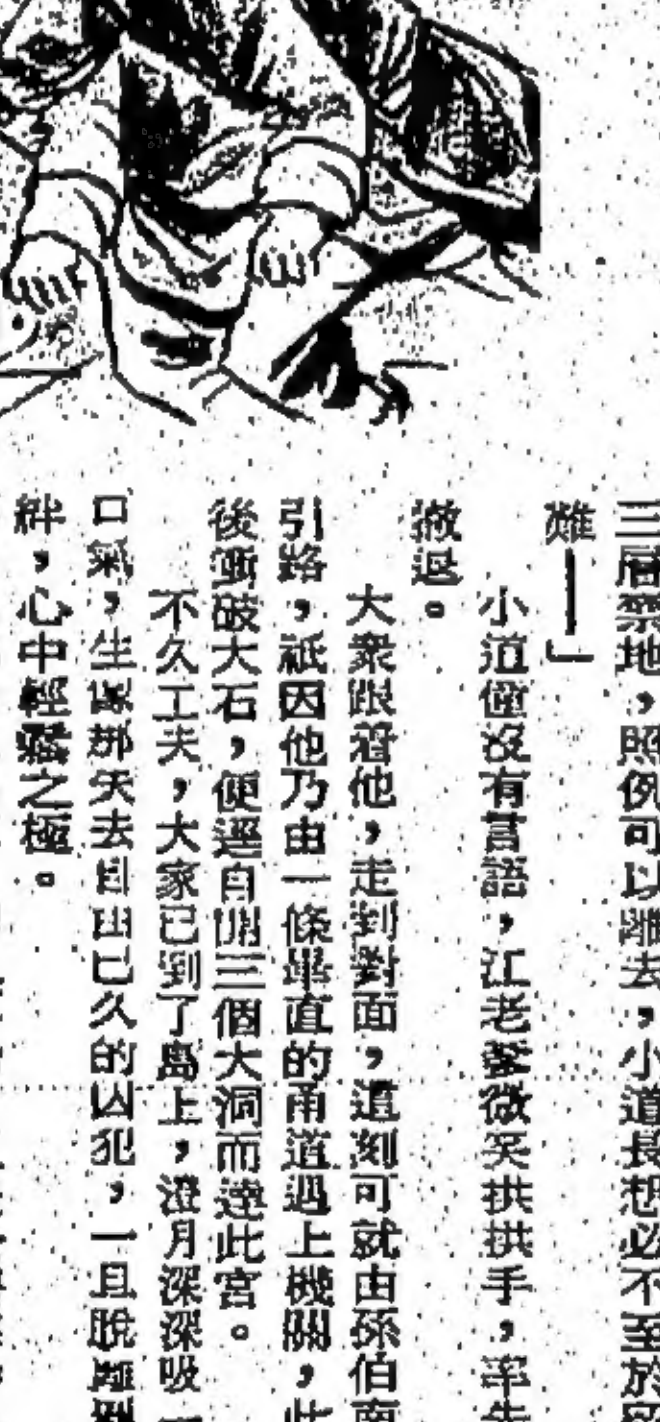 三層禁地，照例可以離去，小道長想必不至於
難——」
小道僮沒有言語，江老爹微笑拱拱手，率先
撤退。
大衆跟着他，走到對面，這刻可就由孫伯南
引路，祇因他乃由一條畢直的甬道遇上機關，此
後衝破大石，便逕自朝三個大洞而達此宮。
不久工夫，大家已到了島上，澄月深深吸一
口氣，生像那失去自由已久的囚犯，一旦脫離
絆，心中輕鬆之極。